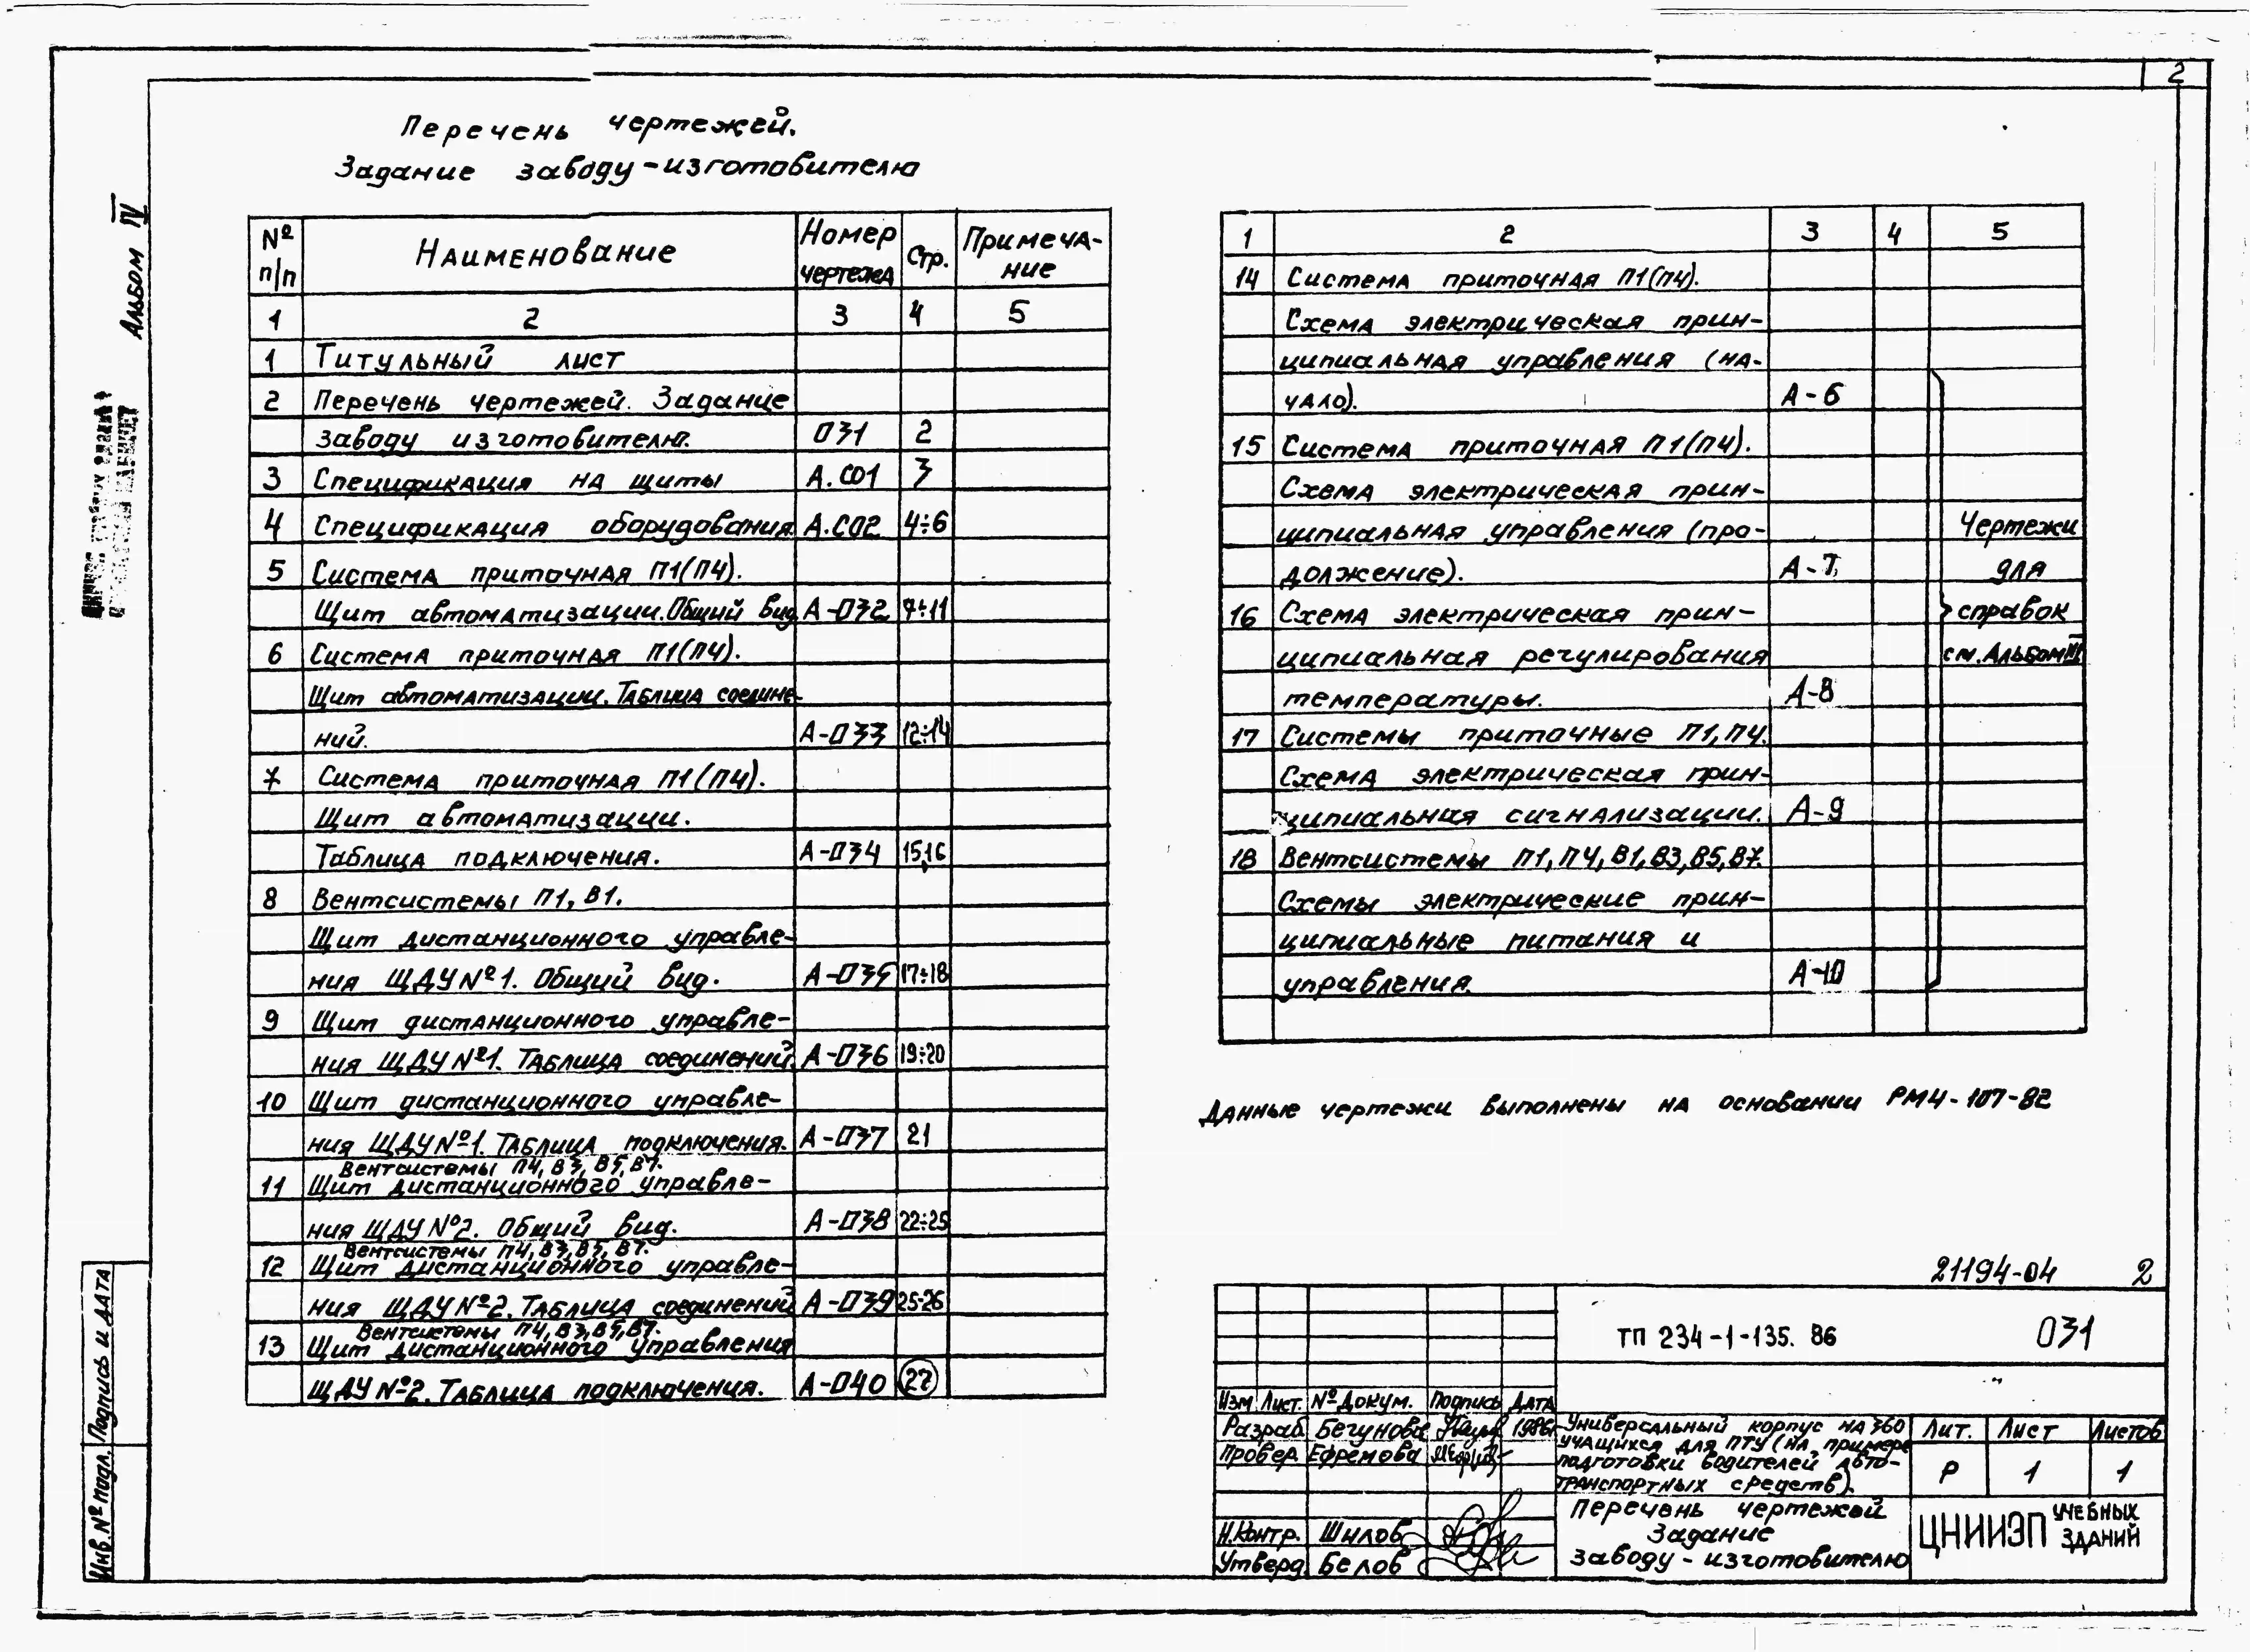 2
Перечень чертежей.
Задание заводу-изготовителю
Альбом IV
№ п/п Наименование Номер чертежа Стр. Примеча-ние
1 2 3 4 5
1 Титульный лист
2 Перечень чертежей. Задание
заводу изготовителю. ОЗ1 2
3 Спецификация на щиты А.СО1 3
4 Спецификация оборудования. А.СО2 4÷6
5 Система приточная П1(П4).
Щит автоматизации. Общий вид А-ОЗ2 7÷11
6 Система приточная П1(П4).
Щит автоматизации. Таблица соедине-
ний. А-ОЗ3 12÷14
7 Система приточная П1(П4).
Щит автоматизации.
Таблица подключения. А-ОЗ4 15,16
8 Вентсистемы П1, В1.
Щит дистанционного управле-
ния ЩДУ №1. Общий вид. А-ОЗ5 17÷18
9 Щит дистанционного управле-
ния ЩДУ №1. Таблица соединений. А-ОЗ6 19÷20
10 Щит дистанционного управле-
ния ЩДУ №1. Таблица подключения. А-ОЗ7 21
Вентсистемы П4, В3, В5, В7.
11 Щит дистанционного управле-
ния ЩДУ №2. Общий вид. А-ОЗ8 22÷25
Вентсистемы П4, В3, В5, В7.
12 Щит дистанционного управле-
ния ЩДУ №2. Таблица соединений А-ОЗ9 25-26
Вентсистемы П4, В3, В5, В7.
13 Щит дистанционного управления
ЩДУ №2. Таблица подключения. А-О40 27
1 2 3 4 5
14 Система приточная П1(П4).
Схема электрическая прин-
ципиальная управления (на-
чало). А-6
15 Система приточная П1(П4).
Схема электрическая прин-
ципиальная управления (про- Чертежи
должение). А-7 для
16 Схема электрическая прин- справок
ципиальная регулирования см. Альбом III
температуры. А-8
17 Системы приточные П1, П4.
Схема электрическая прин-
ципиальная сигнализации. А-9
18 Вентсистемы П1, П4, В1, В3, В5, В7.
Схемы электрические прин-
ципиальные питания и
управления. А-10
Данные чертежи выполнены на основании РМ4-107-82
21194-04 2
ТП 234-1-135. 86 ОЗ1
Изм Лист. № докум. Подпись Дата
Разраб. Бегунова 1986г
Провер. Ефремова
Н.Контр. Шилов
Утверд. Белов
Универсальный корпус на 360
учащихся для ПТУ (на примере
подготовки водителей авто-
транспортных средств).
Лит. Лист Листов
Р 1 1
Перечень чертежей
Задание
заводу-изготовителю
ЦНИИЭП УЧЕБНЫХ ЗДАНИЙ
Подпись и дата
Инв.№ подл.